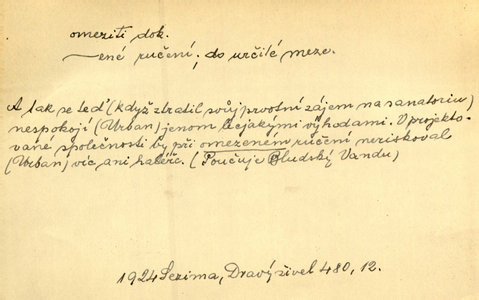 omeziti dok.
—ené ručení; do určité meze.
A tak se teď (když ztratil svůj prvotní zájem na sanatoriu)
nespokojí (Urban) jenom lecjakými výhodami. V projekto-
vané společnosti by při omezeném ručení neriskoval
(Urban) víc ani haléř. (Poučuje Bludský Vandu)
1924 Sezima, Dravý živel 480, 12.